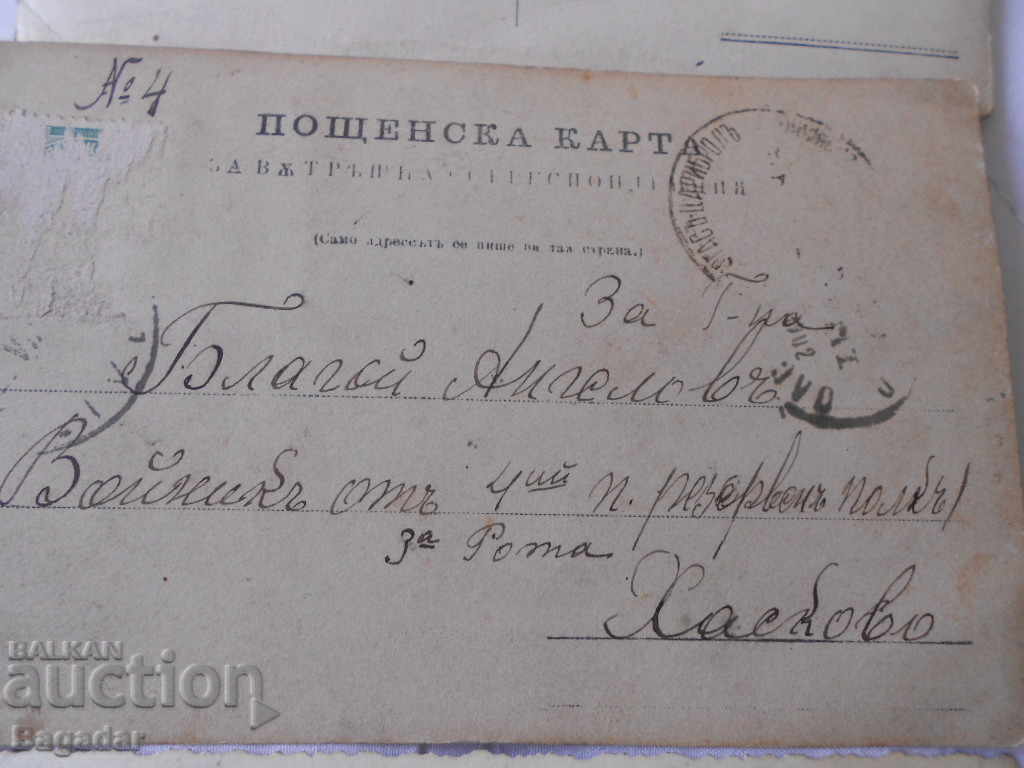 № 4
ПОЩЕНСКА КАРТА
ЗА ВѪТРѢШНА КОРРЕСПОНДЕНЦИЯ
(Само адрессътъ се пише на тая страна.)
За Г-на
Благой Ангеловъ
Войникъ от 4ий п. резервенъ полкъ
3а Рота
Хасково
BALKAN
auction
Bagadar